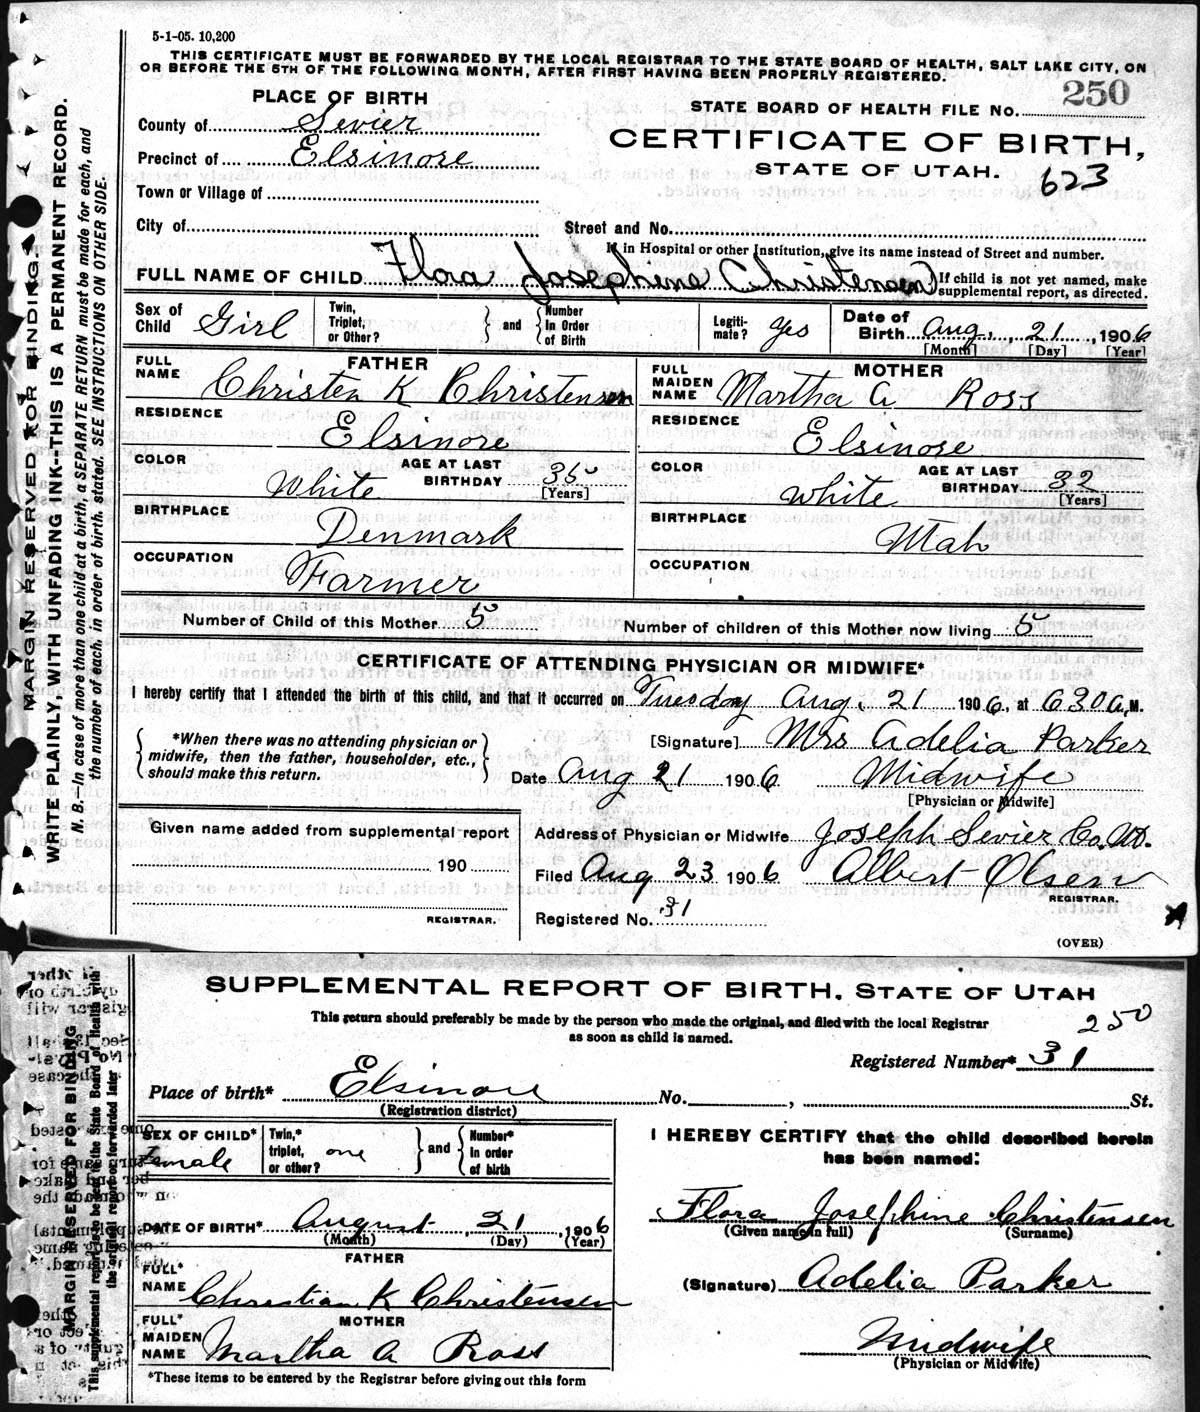 5-1-05. 10,200
THIS CERTIFICATE MUST BE FORWARDED BY THE LOCAL REGISTRAR TO THE STATE BOARD OF HEALTH, SALT LAKE CITY, ON
OR BEFORE THE 5TH OF THE FOLLOWING MONTH, AFTER FIRST HAVING BEEN PROPERLY REGISTERED.
PLACE OF BIRTH
STATE BOARD OF HEALTH FILE No. 250
County of Sevier
CERTIFICATE OF BIRTH,
Precinct of Elsinore
STATE OF UTAH.
623
Town or Village of
City of
Street and No.
If in Hospital or other Institution, give its name instead of Street and number.
FULL NAME OF CHILD Flora Josephine Christensen
If child is not yet named, make
supplemental report, as directed.
Sex of Child Girl
Twin, Triplet, or Other? and Number In Order of Birth
Legitimate? Yes
Date of Birth Aug. 21, 1906
[Month] [Day] [Year]
FATHER
FULL NAME Christen K Christensen
MOTHER
FULL MAIDEN NAME Martha A Ross
RESIDENCE Elsinore
RESIDENCE Elsinore
COLOR White AGE AT LAST BIRTHDAY 35 [Years]
COLOR White AGE AT LAST BIRTHDAY 32 [Years]
BIRTHPLACE Denmark
BIRTHPLACE Utah
OCCUPATION Farmer
OCCUPATION
Number of Child of this Mother 5
Number of children of this Mother now living 5
CERTIFICATE OF ATTENDING PHYSICIAN OR MIDWIFE*
I hereby certify that I attended the birth of this child, and that it occurred on Tuesday Aug. 21 1906, at 630 A.M.
*When there was no attending physician or
midwife, then the father, householder, etc.,
should make this return.
[Signature] Mrs Adelia Parker
Date Aug 21 1906 Midwife
[Physician or Midwife]
Given name added from supplemental report
190
REGISTRAR.
Address of Physician or Midwife Joseph Sevier Co. Ut.
Filed Aug 23 1906 Albert Olsen
REGISTRAR.
Registered No. 31
(OVER)
MARGIN RESERVED FOR BINDING.
WRITE PLAINLY, WITH UNFADING INK-THIS IS A PERMANENT RECORD.
N. B.—In case of more than one child at a birth, a SEPARATE RETURN must be made for each, and
the number of each, in order of birth, stated. SEE INSTRUCTIONS ON OTHER SIDE.
SUPPLEMENTAL REPORT OF BIRTH, STATE OF UTAH
This return should preferably be made by the person who made the original, and filed with the local Registrar
as soon as child is named.
250
Registered Number* 31
Place of birth* Elsinore No. , St.
(Registration district)
SEX OF CHILD* Female
Twin,* triplet, or other? one and Number* In order of birth
I HEREBY CERTIFY that the child described herein
has been named:
DATE OF BIRTH* August 21, 1906
(Month) (Day) (Year)
Flora Josephine Christensen
(Given name in full) (Surname)
FATHER
FULL* NAME Christian K Christensen
(Signature) Adelia Parker
MOTHER
FULL* MAIDEN NAME Martha A Ross
Midwife
(Physician or Midwife)
*These items to be entered by the Registrar before giving out this form
MARGIN RESERVED FOR BINDING
This supplemental report to be sent to the State Board of Health with
the original report or forwarded later